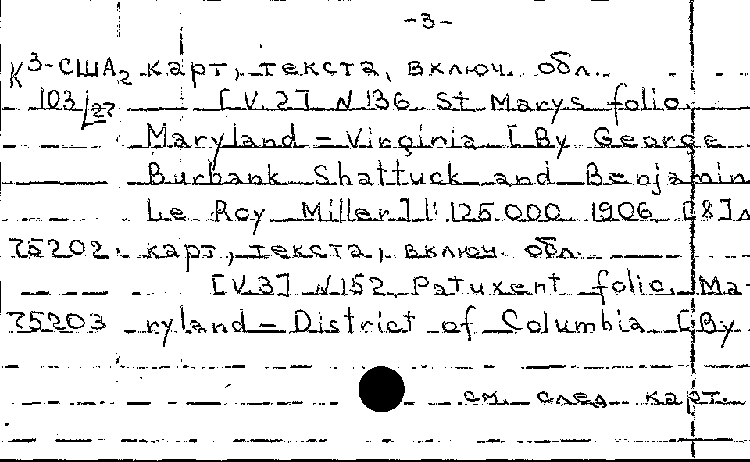 -3-
К 3-США2 карт, текста, включ. обл.
103/27 [V. 2] N 136 St Marys folio.
Maryland - Virginia [By George
Burbank Shattuck and Benjamin
Le Roy Miller] 1:125.000 1906 [8]л
75202. карт, текста, включ. обл.
[V.3] N 152 Patuxent folio. Ma-
75203 ryland - District of Columbia [By
см. след карт.